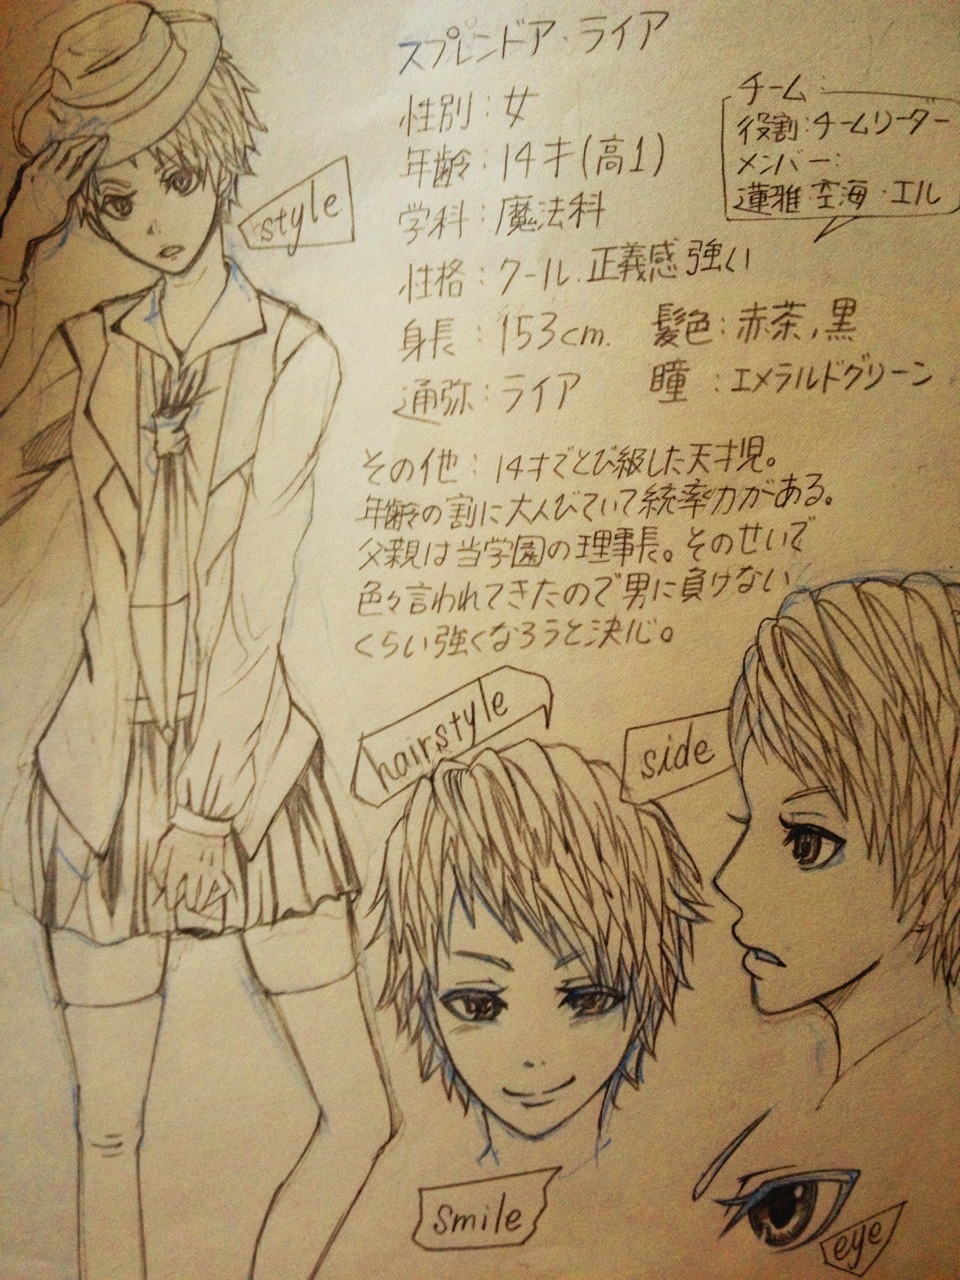 スプレンドア・ライア
性別:女
年齢:14才(高1)
学科:魔法科
性格:クール.正義感強い
身長:153cm. 髪色:赤茶,黒
通弥:ライア 瞳:エメラルドグリーン
チーム:
役割:チームリーダー
メンバー:
蓮雅・空海・エル
その他:14才でとび級した天才児。
年齢の割に大人びていて統率力がある。
父親は当学園の理事長。そのせいで
色々言われてきたので男に負けない
くらい強くなろうと決心。
style
hairstyle
side
smile
eye